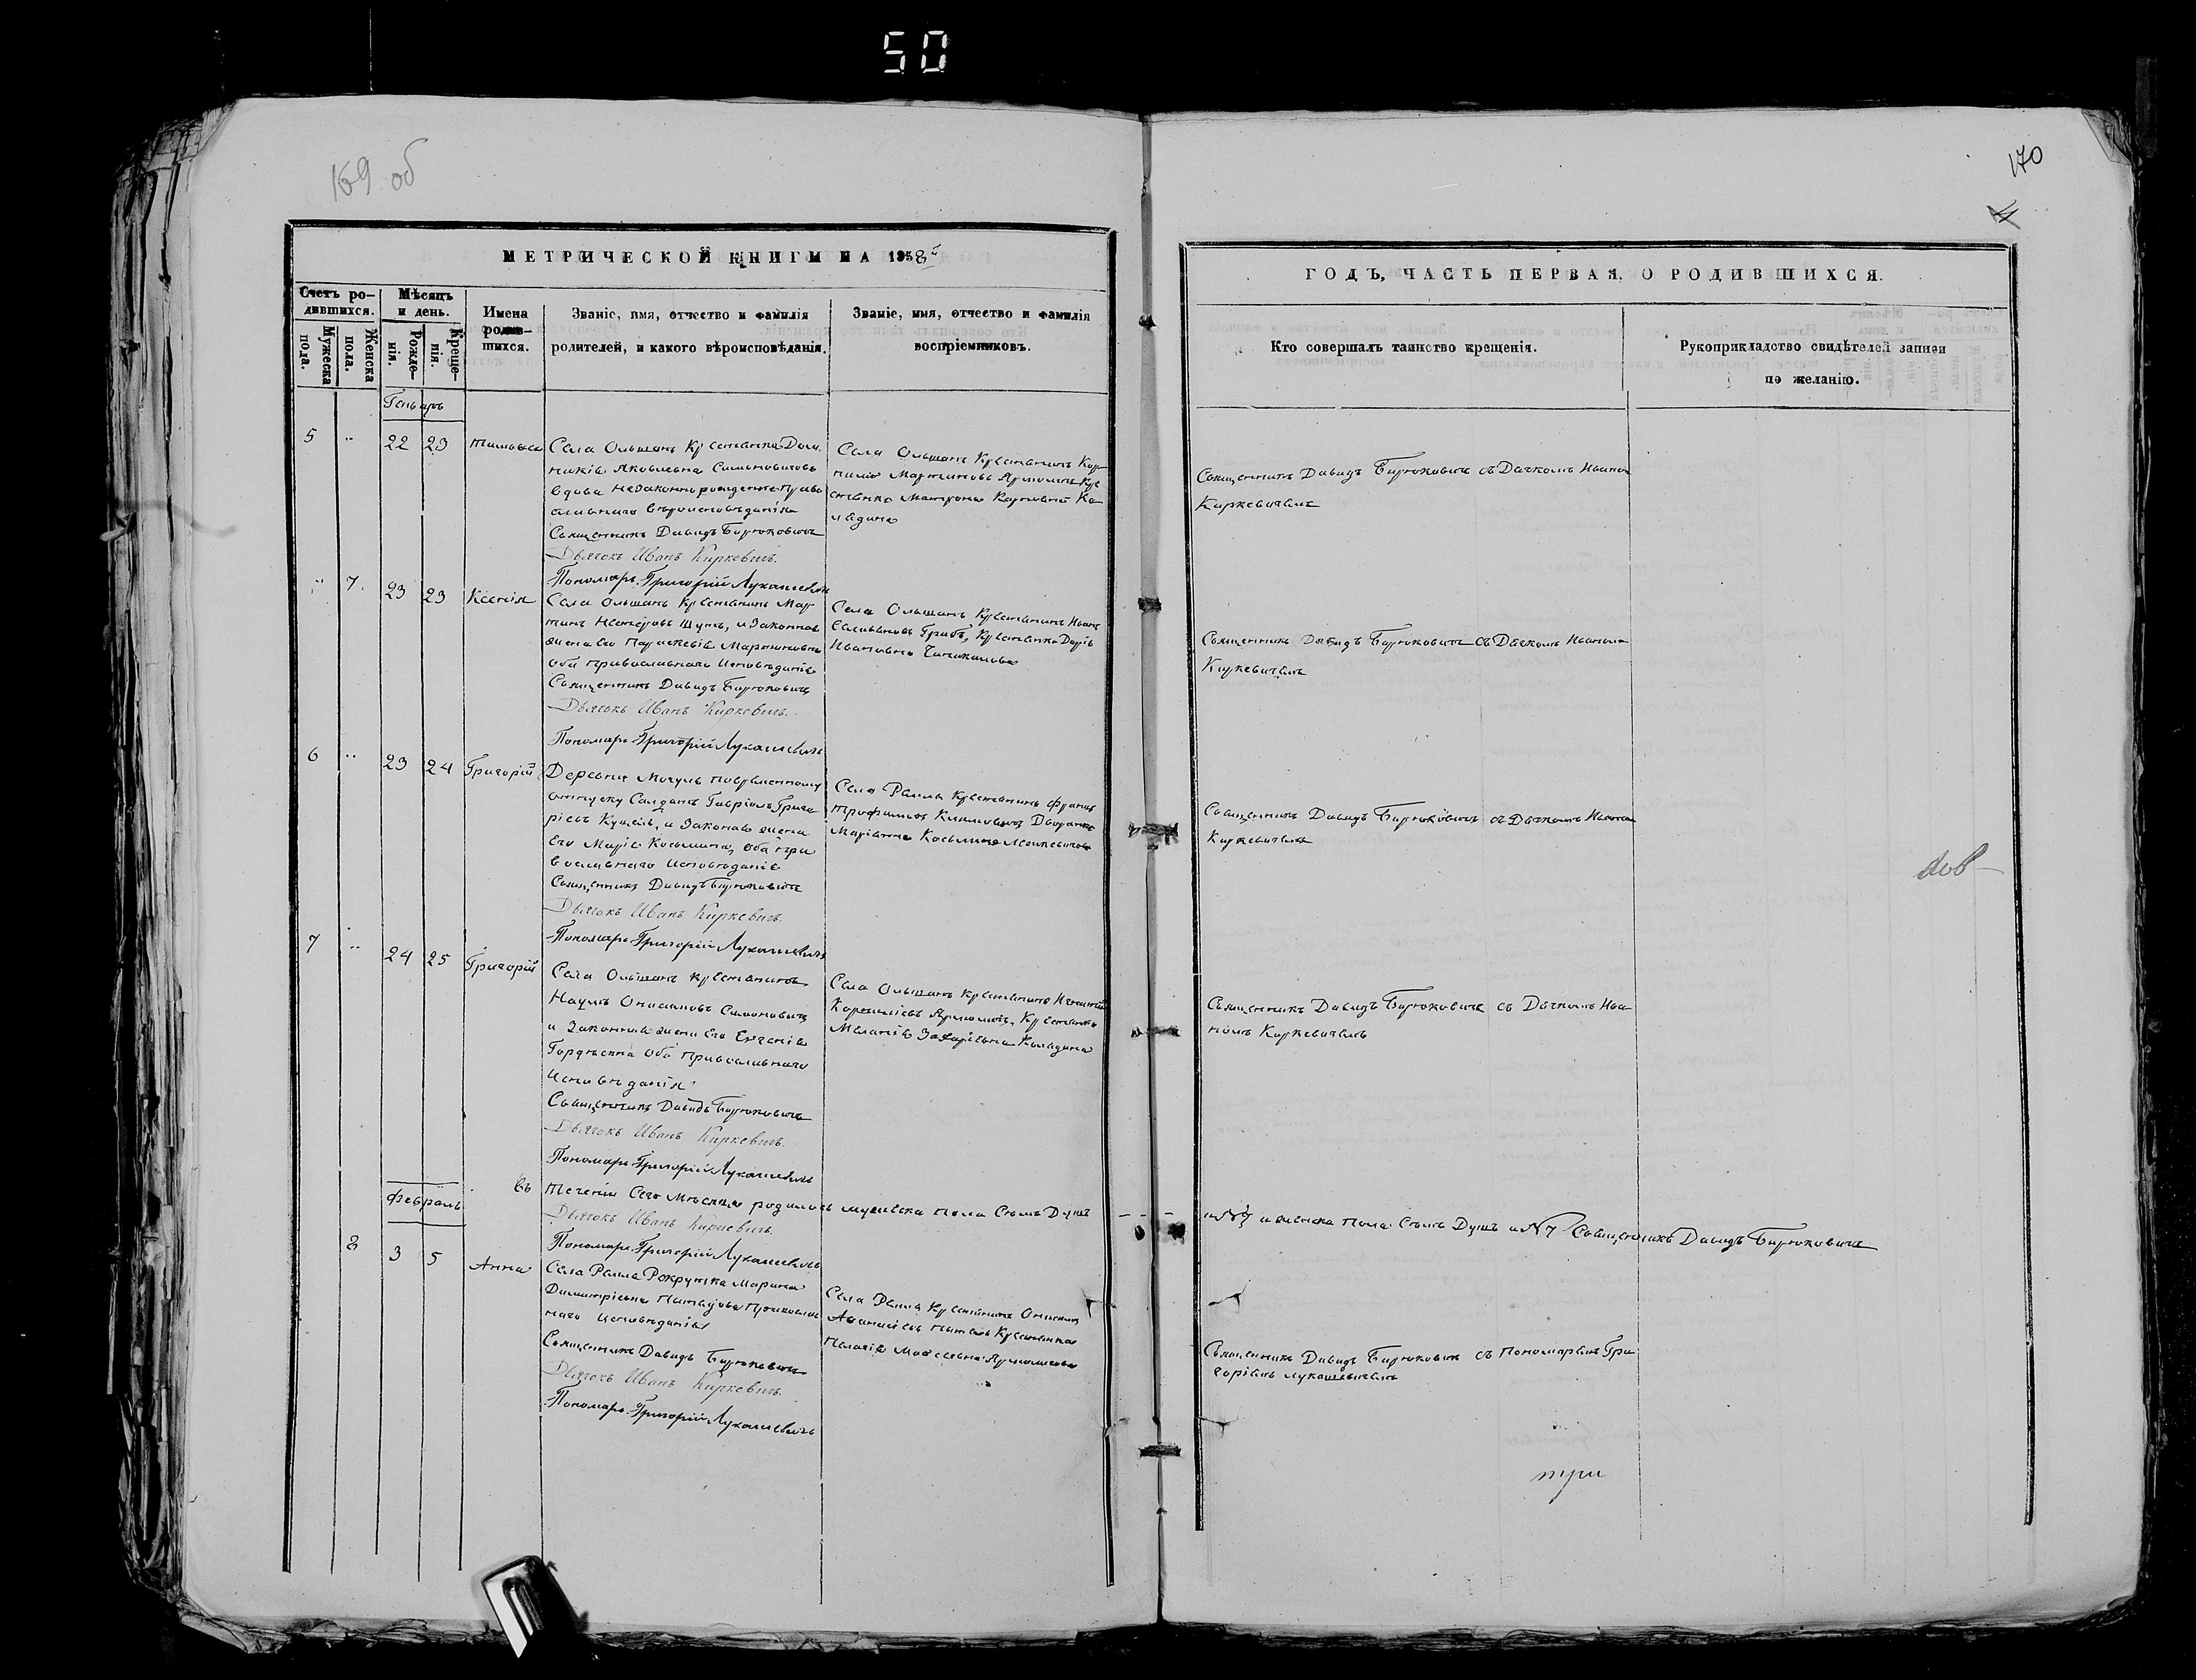 50
169 об
170
4
МЕТРИЧЕСКОЙ КНИГИ НА 1858й
ГОДЪ, ЧАСТЬ ПЕРВАЯ, О РОДИВШИХСЯ.
Счетъ ро-
дившихся.
Мужеска
пола.
Женска
пола.
Мѣсяцъ
и день.
Рожде-
нія.
Креще-
нія.
Имена
родив-
шихся.
Званіе, имя, отчество и фамилія
родителей, и какого вѣроисповѣданія.
Званіе, имя, отчество и фамилія
воспріемниковъ.
Кто совершалъ таинство крещенія.
Рукоприкладство свидѣтелей записи
по желанію.
Генварь
5 " 22 23
Села Ольшанъ Крестянка Дом-
никія Яковлевна Симоновичова
вдова незаконнорожденное Право
славнаго вѣроисповѣданія
Священникъ Давидъ Бирюковичъ
Дьячокъ Иванъ Киркевичъ.
Пономарь Григорій Лукашевичъ
Села Ольшанъ Крестянинъ Кор-
нилій Мартиновъ Ярмоличъ Кре
стянка Матрона Карповна Ко
лядина
Священникъ Давидъ Бирюковичъ съ Дячкомъ Иваномъ
Киркевичемъ
" 7. 23 23 Ксенія
Села Ольшанъ Крестянинъ Мар-
тинъ Несторовъ Шумъ, и Законная
жена его Параскевія Мартиновна
оба православнаго Исповѣданія
Священникъ Давидъ Бирюковичъ
Дьячокъ Иванъ Киркевичъ.
Пономарь Григорій Лукашевичъ
Села Ольшанъ Крестянинъ Иванъ
Грибъ, Крестянка Дарія
Ивановна
Священникъ Давидъ Бирюковичъ съ Дячкомъ Иваномъ
Киркевичемъ
6 " 23 24 Григорій
Деревни Могуль повременному
отпуску Салдатъ Гавріилъ Григо
ріевъ Кужель, и Законая жена
его Марія Косьмина, оба пра
вославнаго Исповѣданія
Священникъ Давидъ Бирюковичъ
Дьячокъ Иванъ Киркевичъ.
Пономарь Григорій Лукашевичъ
Села Рамля Крестянинъ Францъ
Трофимовъ Климовичъ Дворянка
Маріанна Косьмина
Священникъ Давидъ Бирюковичъ съ Дячкомъ Иваномъ
Киркевичемъ
7 " 24 25 Григорій
Села Ольшанъ Крестянинъ
Наумъ Онисимовъ Симоновичъ
и Законная жена Его Евгенія
Гордѣевна Оба Православнаго
Исповѣданія
Священникъ Давидъ Бирюковичъ
Дьячокъ Иванъ Киркевичъ.
Пономарь Григорій Лукашевичъ
Села Ольшанъ Крестянинъ Игнатій
Корниліевъ Ярмоличъ, Крестянка
Меланія Захаріевна Колядина
Священникъ Давидъ Бирюковичъ съ Дячкомъ Ива
номъ Киркевичемъ
въ теченіи Сего Мѣсяца родилось мужеска пола Семь Душъ
№7 и женска пола Семь Душъ №7 Священникъ Давидъ Бирюковичъ
Дьячокъ Иванъ Киркевичъ.
Пономарь Григорій Лукашевичъ
Февраль
8 3 5 Анна
Села Рамля Рокрутка Марина
Димитріевна Православ
наго Исповѣданія
Священникъ Давидъ Бирюковичъ
Дьячокъ Иванъ Киркевичъ.
Пономарь Григорій Лукашевичъ
Села Рамля Крестянинъ Онисимъ
Крестянка
Пелагія Моѵсеевна Ярмоличова
Священникъ Давидъ Бирюковичъ съ Пономаремъ Гри
горіемъ Лукашевичемъ
три